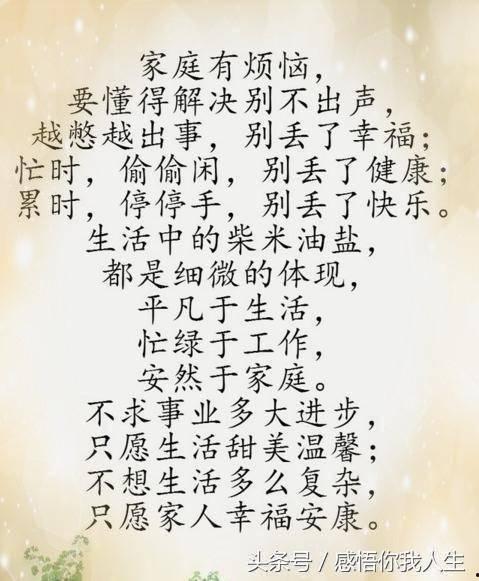 家庭有烦恼，
要懂得解决别不出声，
越憋越出事，别丢了幸福；
忙时，偷偷闲，别丢了健康；
累时，停停手，别丢了快乐。
生活中的柴米油盐，
都是细微的体现，
平凡于生活，
忙绿于工作，
安然于家庭。
不求事业多大进步，
只愿生活甜美温馨；
不想生活多么复杂，
只愿家人幸福安康。
头条号／感悟你我人生